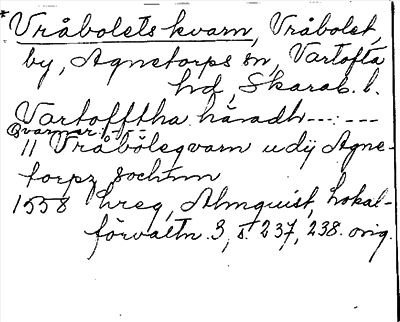 *Vråbolets kvarn, Vråbolet,
by, Agnetorps sn, Vartofta
hd, Skarab. l.
Vartofftha häradh --- ---
Qvarnar: ---
11 Vråbölsqvarn udÿ Agne-
torpz sochnn
1558 hreg, Almquist, Lokal-
förvaltn. 3, s. 237, 238. orig.